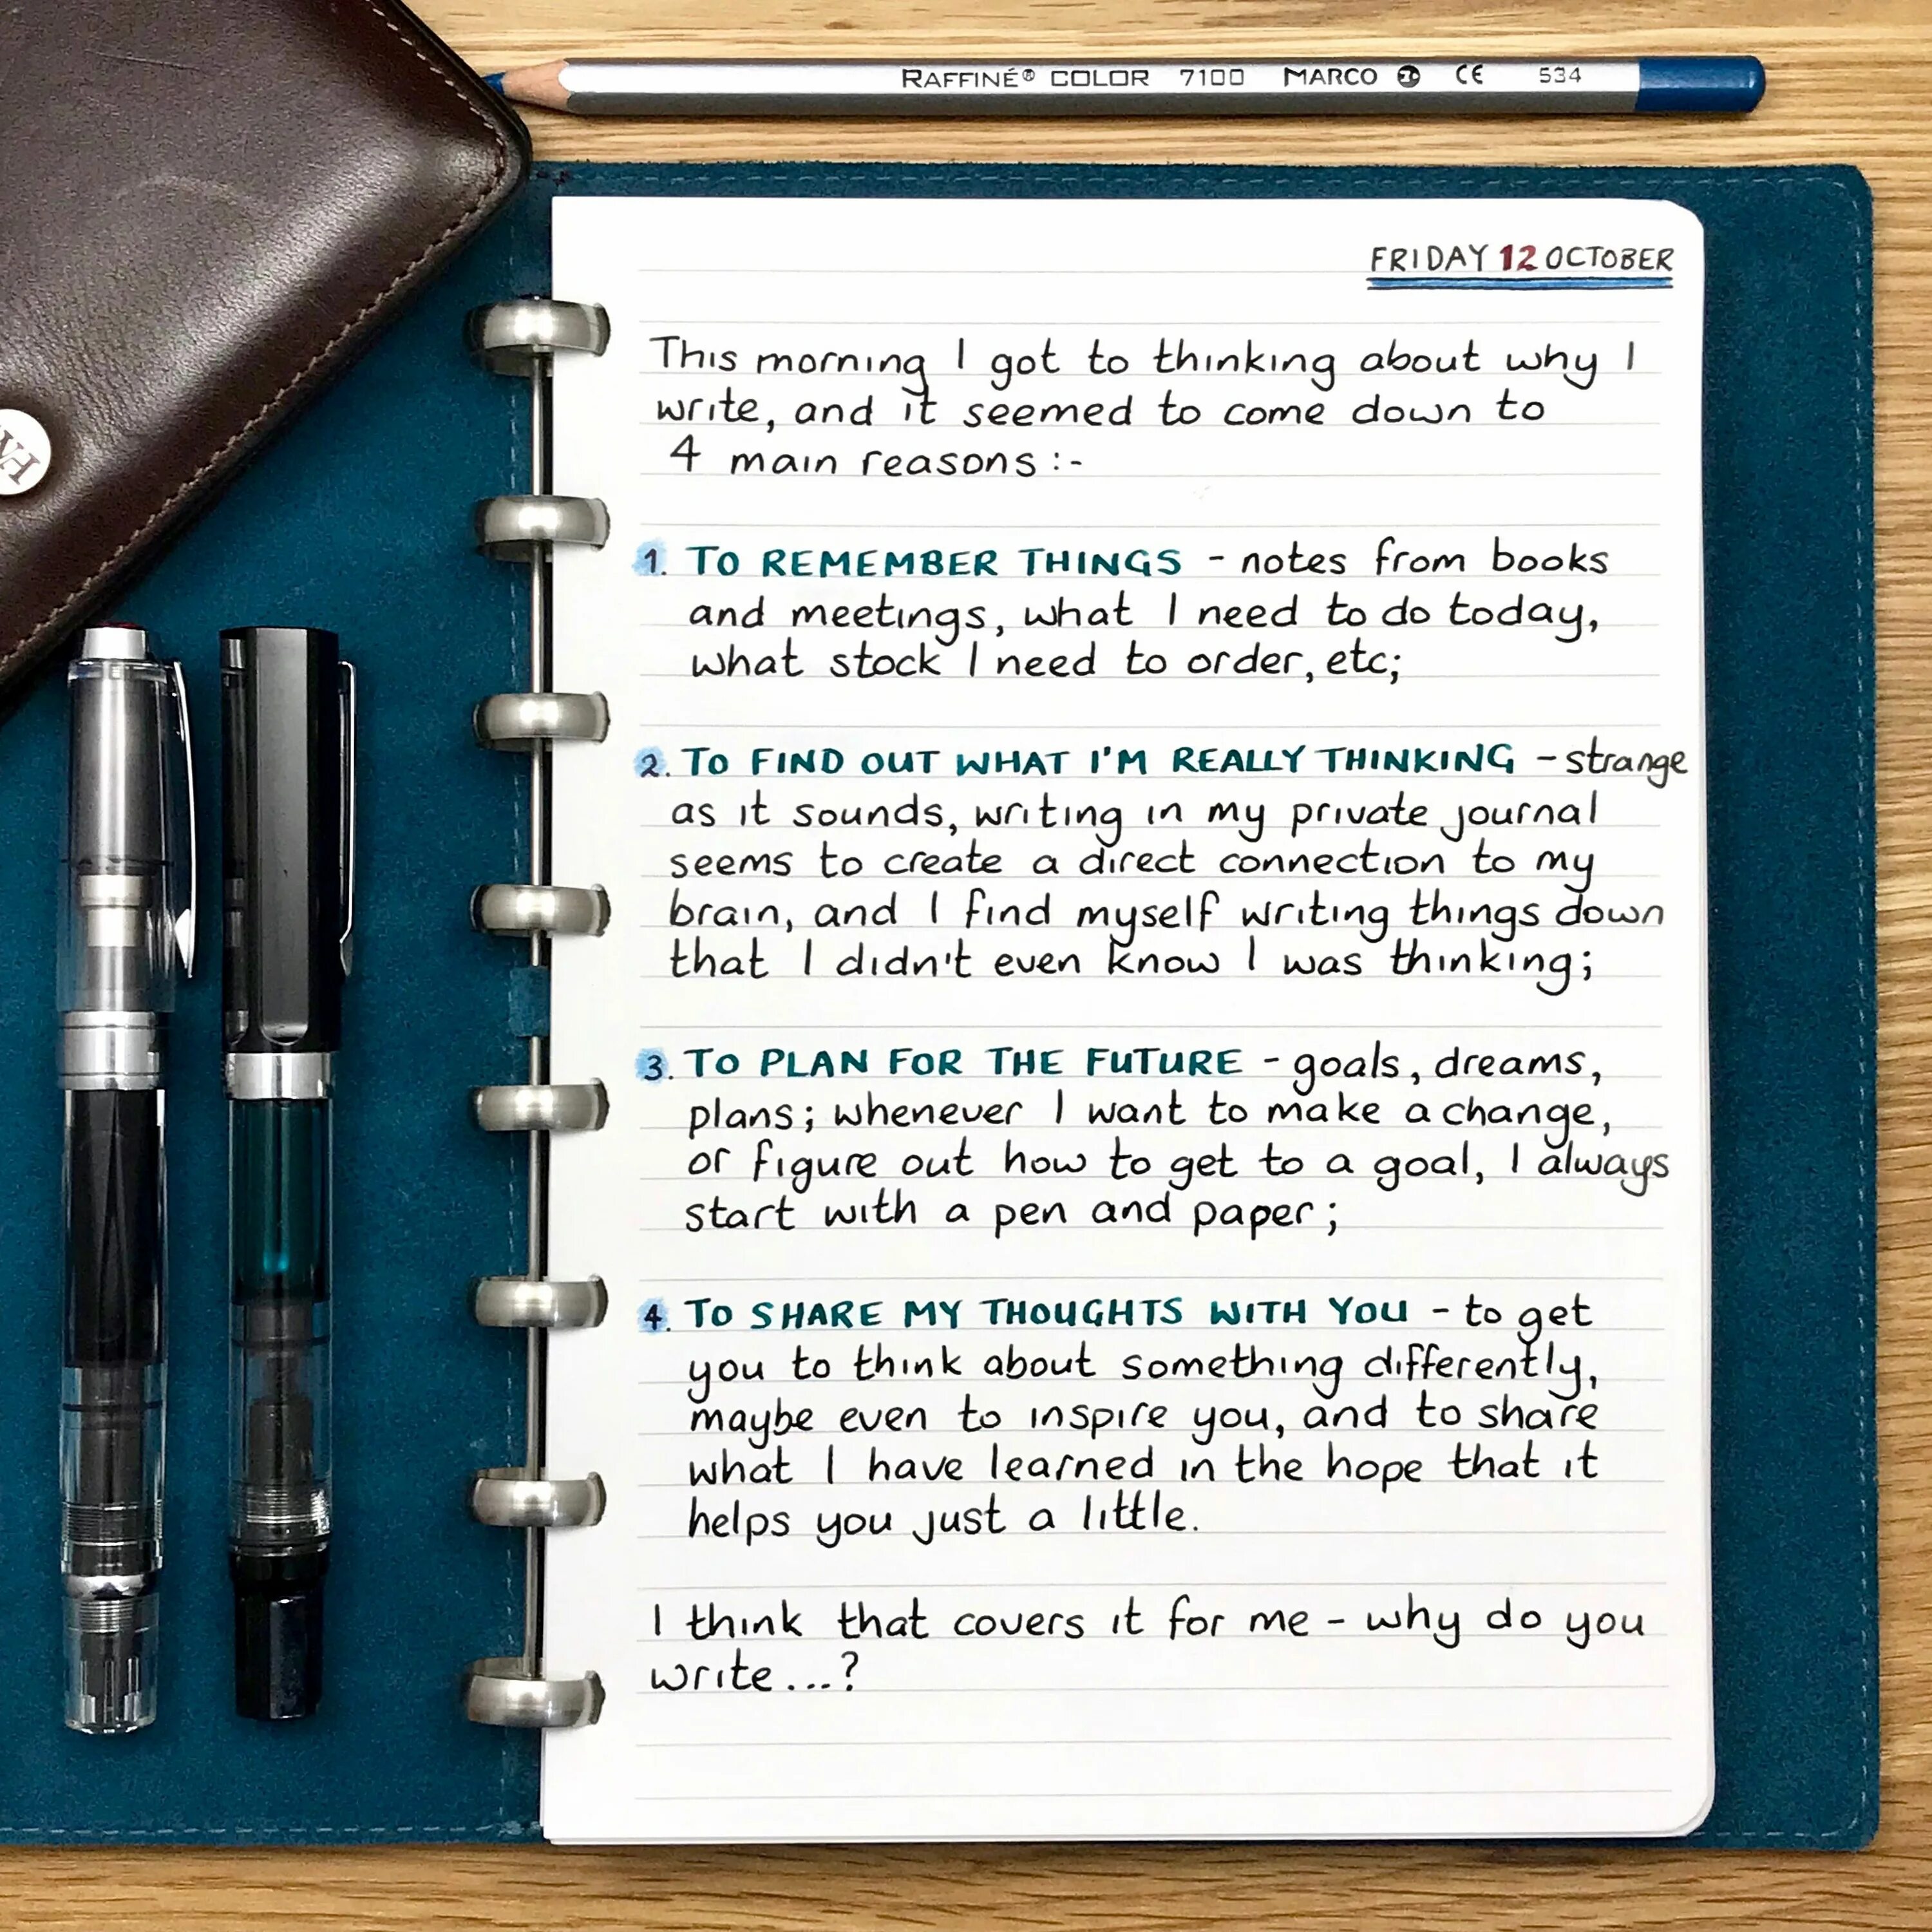 RAFFINÉ® COLOR 7100 MARCO CE 534
FRIDAY 12 OCTOBER
This morning I got to thinking about why I
write, and it seemed to come down to
4 main reasons :-
1. TO REMEMBER THINGS - notes from books
and meetings, what I need to do today,
what stock I need to order, etc;
2. TO FIND OUT WHAT I'M REALLY THINKING - strange
as it sounds, writing in my private journal
seems to create a direct connection to my
brain, and I find myself writing things down
that I didn't even know I was thinking;
3. TO PLAN FOR THE FUTURE - goals, dreams,
plans; whenever I want to make a change,
or figure out how to get to a goal, I always
start with a pen and paper;
4. TO SHARE MY THOUGHTS WITH YOU - to get
you to think about something differently,
maybe even to inspire you, and to share
what I have learned in the hope that it
helps you just a little.
I think that covers it for me - why do you
write...?